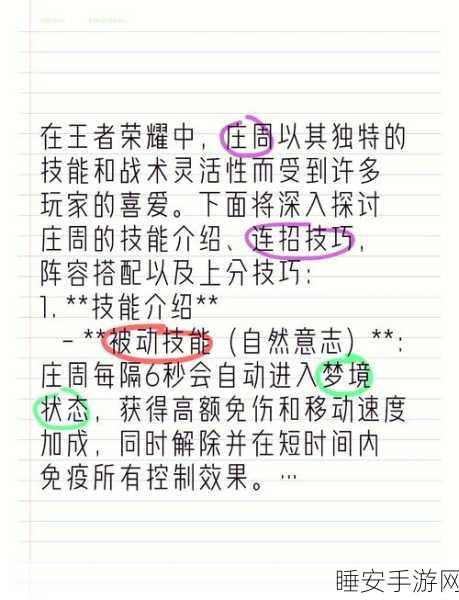 在王者荣耀中，庄周以其独特的
技能和战术灵活性而受到许多
玩家的喜爱。下面将深入探讨
庄周的技能介绍、连招技巧，
阵容搭配以及上分技巧：
1. **技能介绍**
- **被动技能（自然意志）**：
庄周每隔6秒会自动进入梦境
状态，获得高额免伤和移动速度
加成，同时解除并在短时间内
免疫所有控制效果。…
睡安手游网